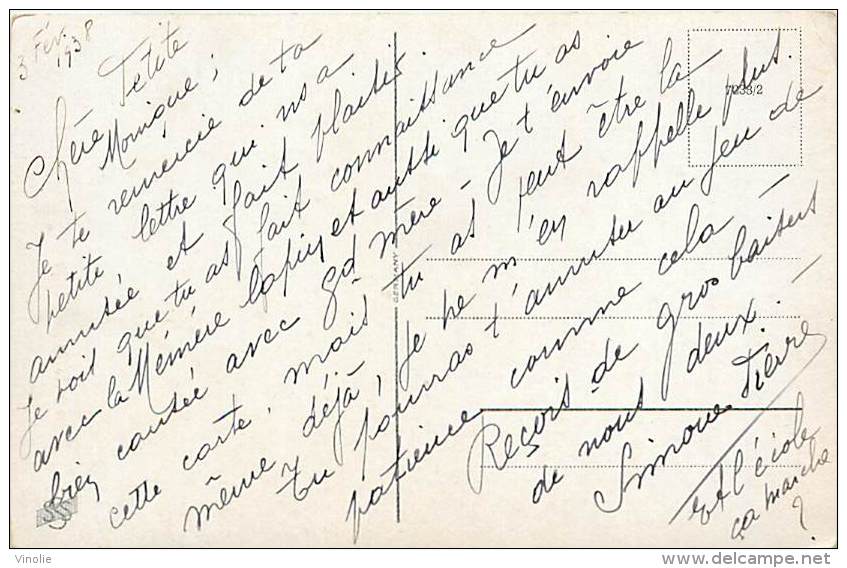 3 Fév. 1938
Chère Petite
Monique,
Je te remercie de ta
petite lettre qui ns a
amusée et fait plaisir.
Je vois que tu as fait connaissance
avec la Mémère Lapin et aussi que tu as
bien causée avec Gd mère - Je t'envoie
cette carte, mais tu as peut être la
même déjà, je ne m'en rappelle plus.
Tu pourras t'amuser au jeu de
patience comme cela -
Reçois de gros baisers
de nous deux. -
Simone Pierre
Et l'école
ça marche
?
7033/2
GERMANY
Vinolie
www.delcampe.net